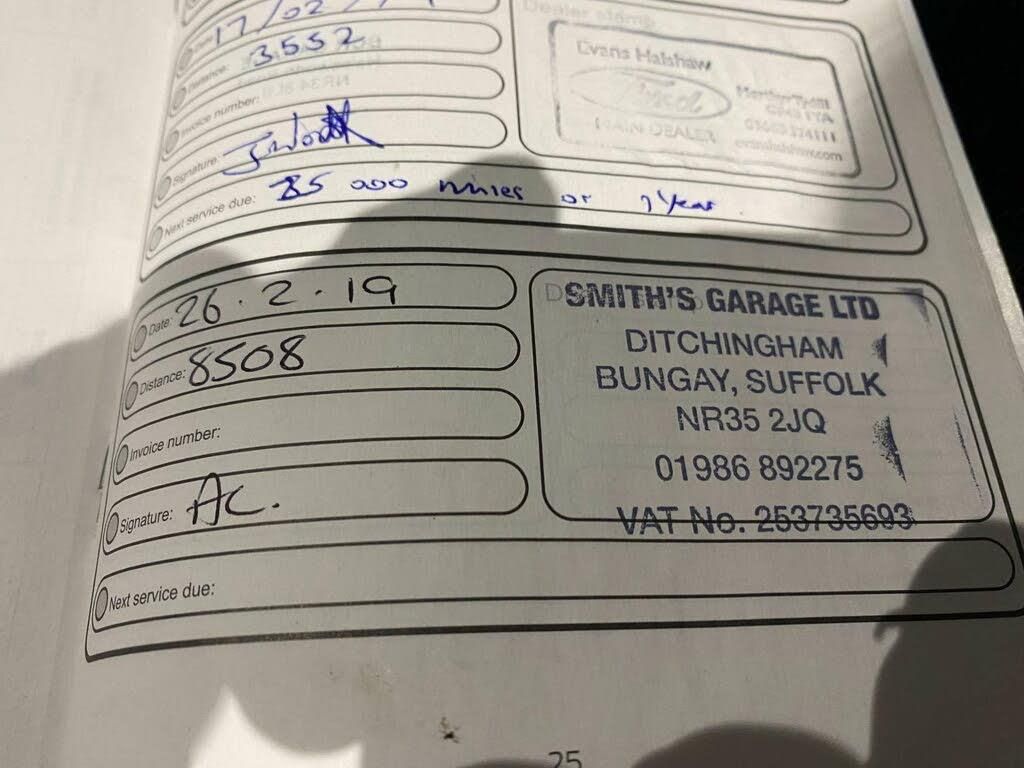 Dealer stamp
Date: 17/02/
Distance: 3552
Invoice number:
Signature:
Evans Halshaw
Ford
MAIN DEALER
Merthyr Tydfil
01685 374111
evanshalshaw.com
Next service due: 000 miles or 1 Year.
Date: 26.2.19
Distance: 8508
Invoice number:
Signature: AC.
Next service due:
SMITH'S GARAGE LTD
DITCHINGHAM
BUNGAY, SUFFOLK
NR35 2JQ
01986 892275
VAT No. 253735693
25